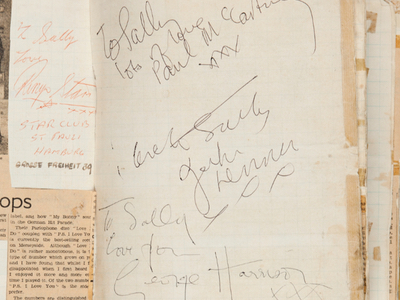 To Sally
Love
Ringo Starr
xxx
STAR CLUB
ST PAULI
HAMBURG
GROSSE FREIHEIT 39
To Sally
lots of love
Paul McCartney
xxx
to Sally
John
Lennon
xxx
To Sally
love from
George Harrison
xxx
ops
label, and how "My Bonny"
in the German Hit Parade.
Their Parlophone disc "Love
Do" coupled with "P.S. I Love You"
is currently the
on Merseyside. Although "Love
Do" is rather monotonous, it is
type of number which grows on
and I have found that whilst I
disappointed when I first heard
I enjoyed it more and more
time I played it. Of the two
"P.S. I Love You" is the one
prefer.
The numbers are distinguished